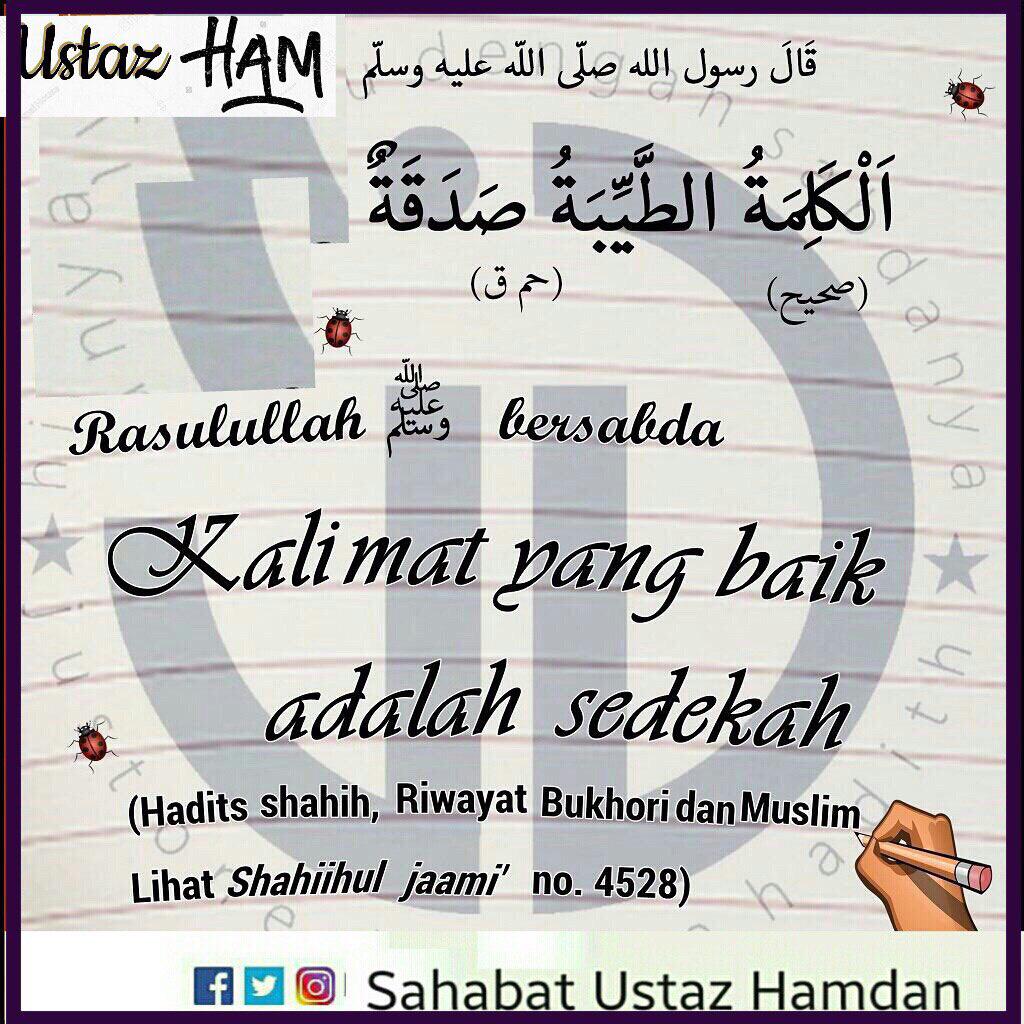 Ustaz HAM
قَالَ رسول الله صلّى اللّه عليه وسلّم
اَلْكَلِمَةُ الطَّيِّبَةُ صَدَقَةٌ
(صحيح) (حم ق)
Rasulullah ﷺ bersabda
Kalimat yang baik
adalah sedekah
(Hadits shahih, Riwayat Bukhori dan Muslim
Lihat Shahiihul jaami' no. 4528)
Sahabat Ustaz Hamdan